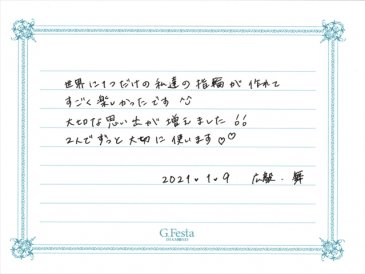 世界に1つだけの私達の指輪が作れて
すごく楽しかったです
大切な思い出が増えました!!
2人でずっと大切に使います♡♡
2021.1.9 広盤・舞
G.Festa
DIAMOND